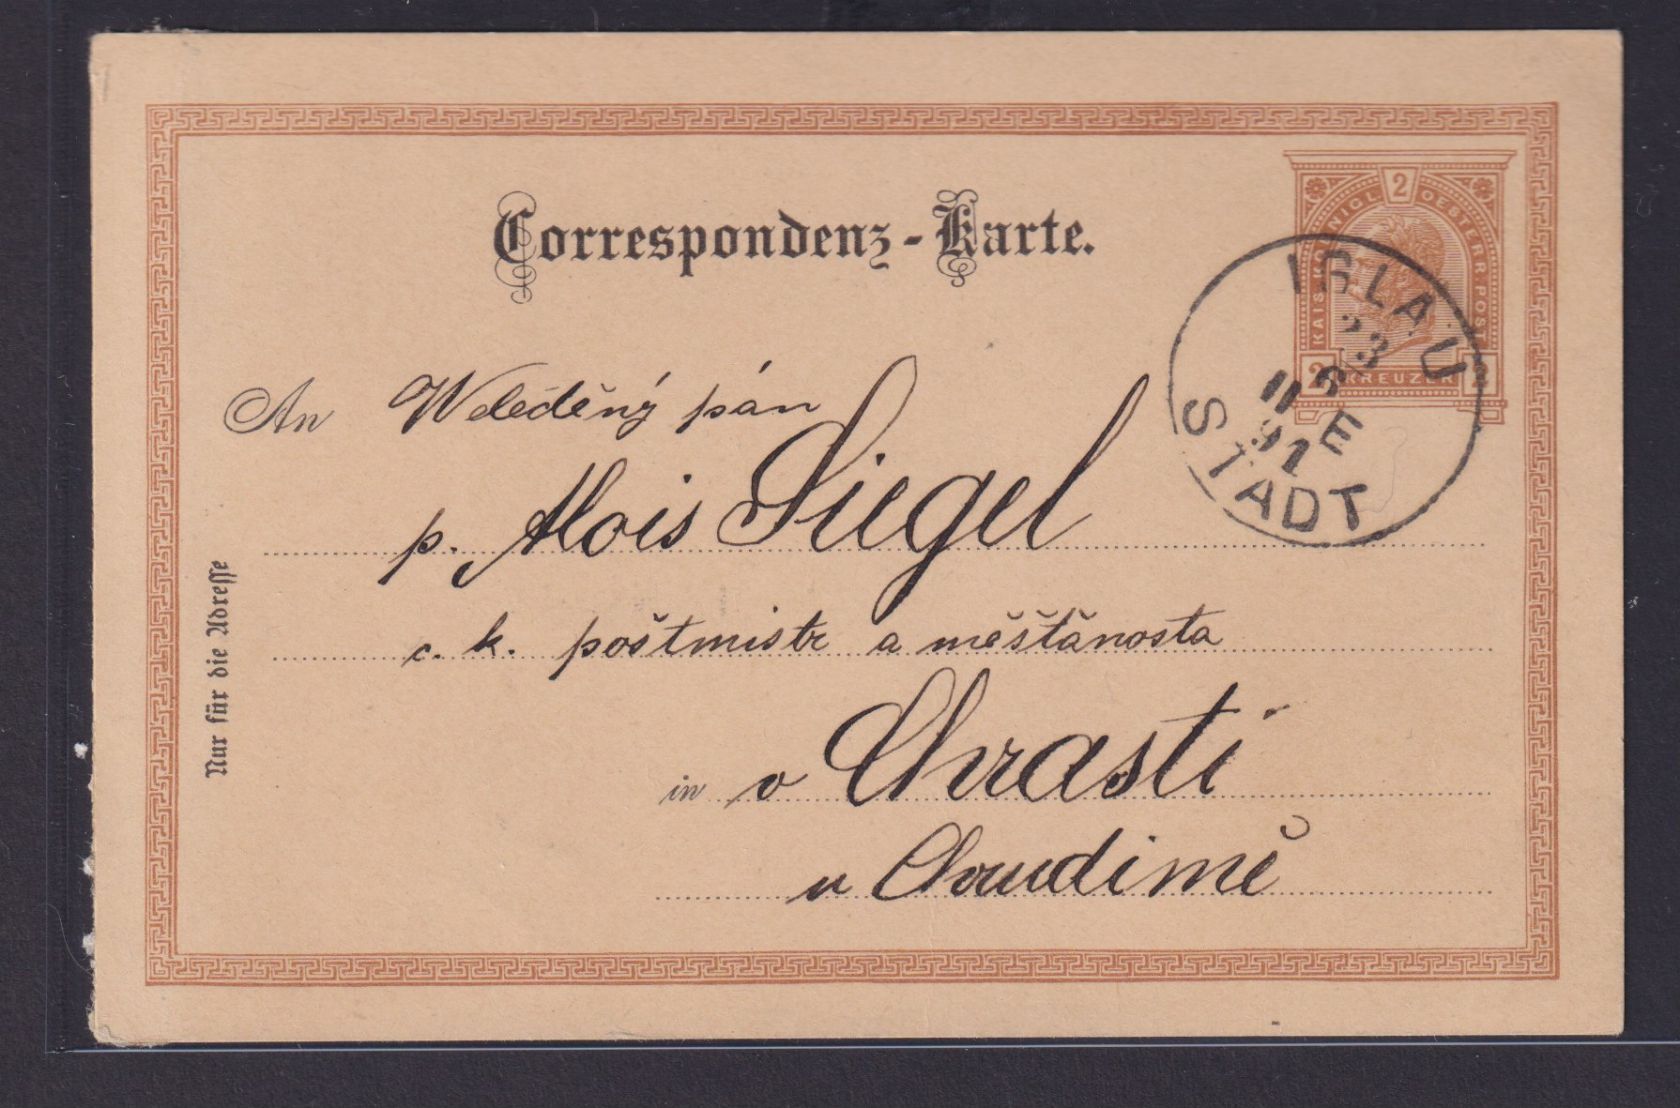 Correspondenz-Karte.
2
KAIS. KÖNIGL. OESTERR. POST
2 KREUZER 2
IGLAU
23
6
11 E
91
STADT
An Weleděný pán
p. Alois Siegel
c. k. poštmistr a měšťanosta
in v Chrasti
u Chrudimě
Nur für die Adresse